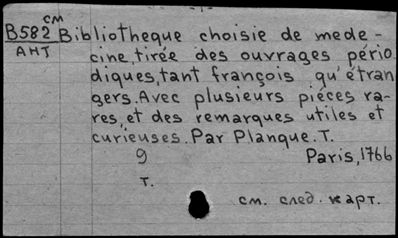 см
B582 Bibliotheque choisie de mede-
АНТ
cine, tirée des ouvrages pério
diques, tant françois qu'étran
gers. Avec plusieurs piéces ra-
res, et des remarques utiles et
curieuses. Par Planque. T.
9 Paris, 1766
т.
см. след. карт.